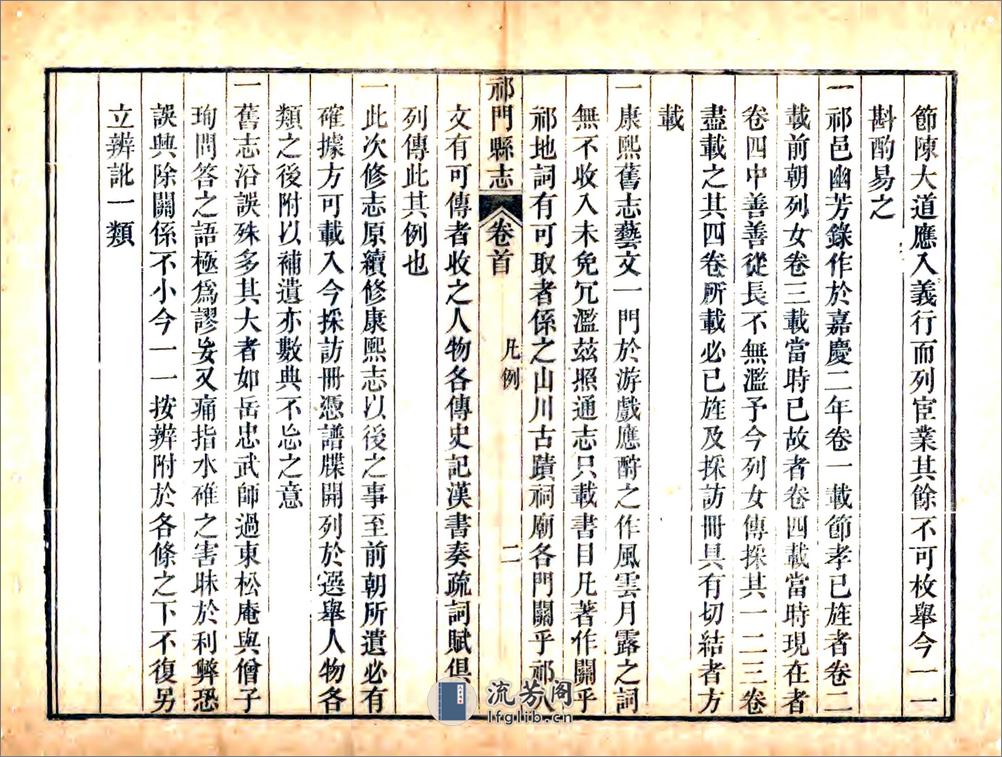 節陳大道應入義行而列宦業其餘不可枚舉今一一
斟酌易之
一祁邑幽芳錄作於嘉慶二年卷一載節孝已旌者卷二
載前朝列女卷三載當時已故者卷四載當時現在者
卷四中善善從長不無濫予今列女傳採其一二三卷
盡載之其四卷所載必已旌及採訪冊具有切結者方
載
一康熙舊志藝文一門於游戲應酧之作風雲月露之詞
無不收入未免冗濫茲照通志只載書目凡著作關乎
祁地詞有可取者係之山川古蹟祠廟各門關乎祁人
祁門縣志 卷首 凡例 二
文有可傳者收之人物各傳史記漢書奏疏詞賦俱
列傳此其例也
一此次修志原續修康熙志以後之事至前朝所遺必有
確據方可載入今採訪冊憑譜牒開列於選舉人物各
類之後附以補遺亦數典不忘之意
一舊志沿誤殊多其大者如岳忠武師過東松庵與僧子
珣問答之語極爲謬妄又痛指水碓之害昧於利弊恐
誤興除關係不小今一一按辨附於各條之下不復另
立辨訛一類
流芳阁
lfglib.cn